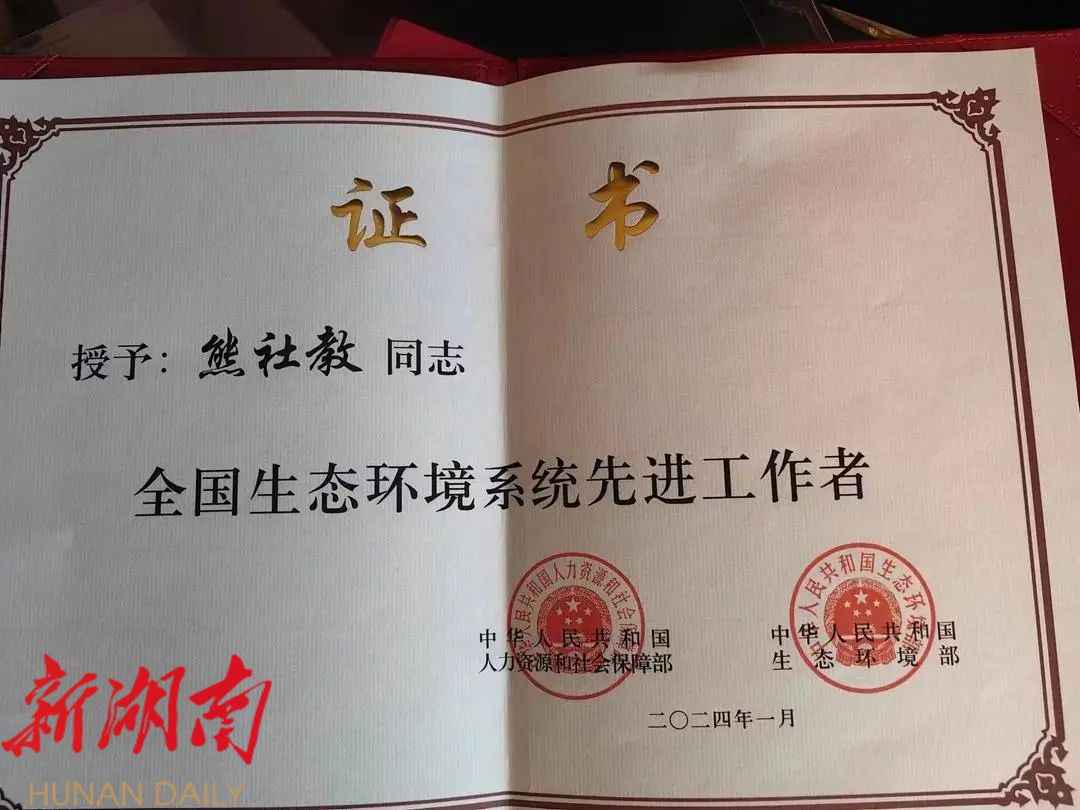 证书
授予：熊社教 同志
全国生态环境系统先进工作者
中华人民共和国人力资源和社会保障部
中华人民共和国生态环境部
中华人民共和国
人力资源和社会保障部
中华人民共和国
生态环境部
二〇二四年一月
新湖南
HUNAN DAILY